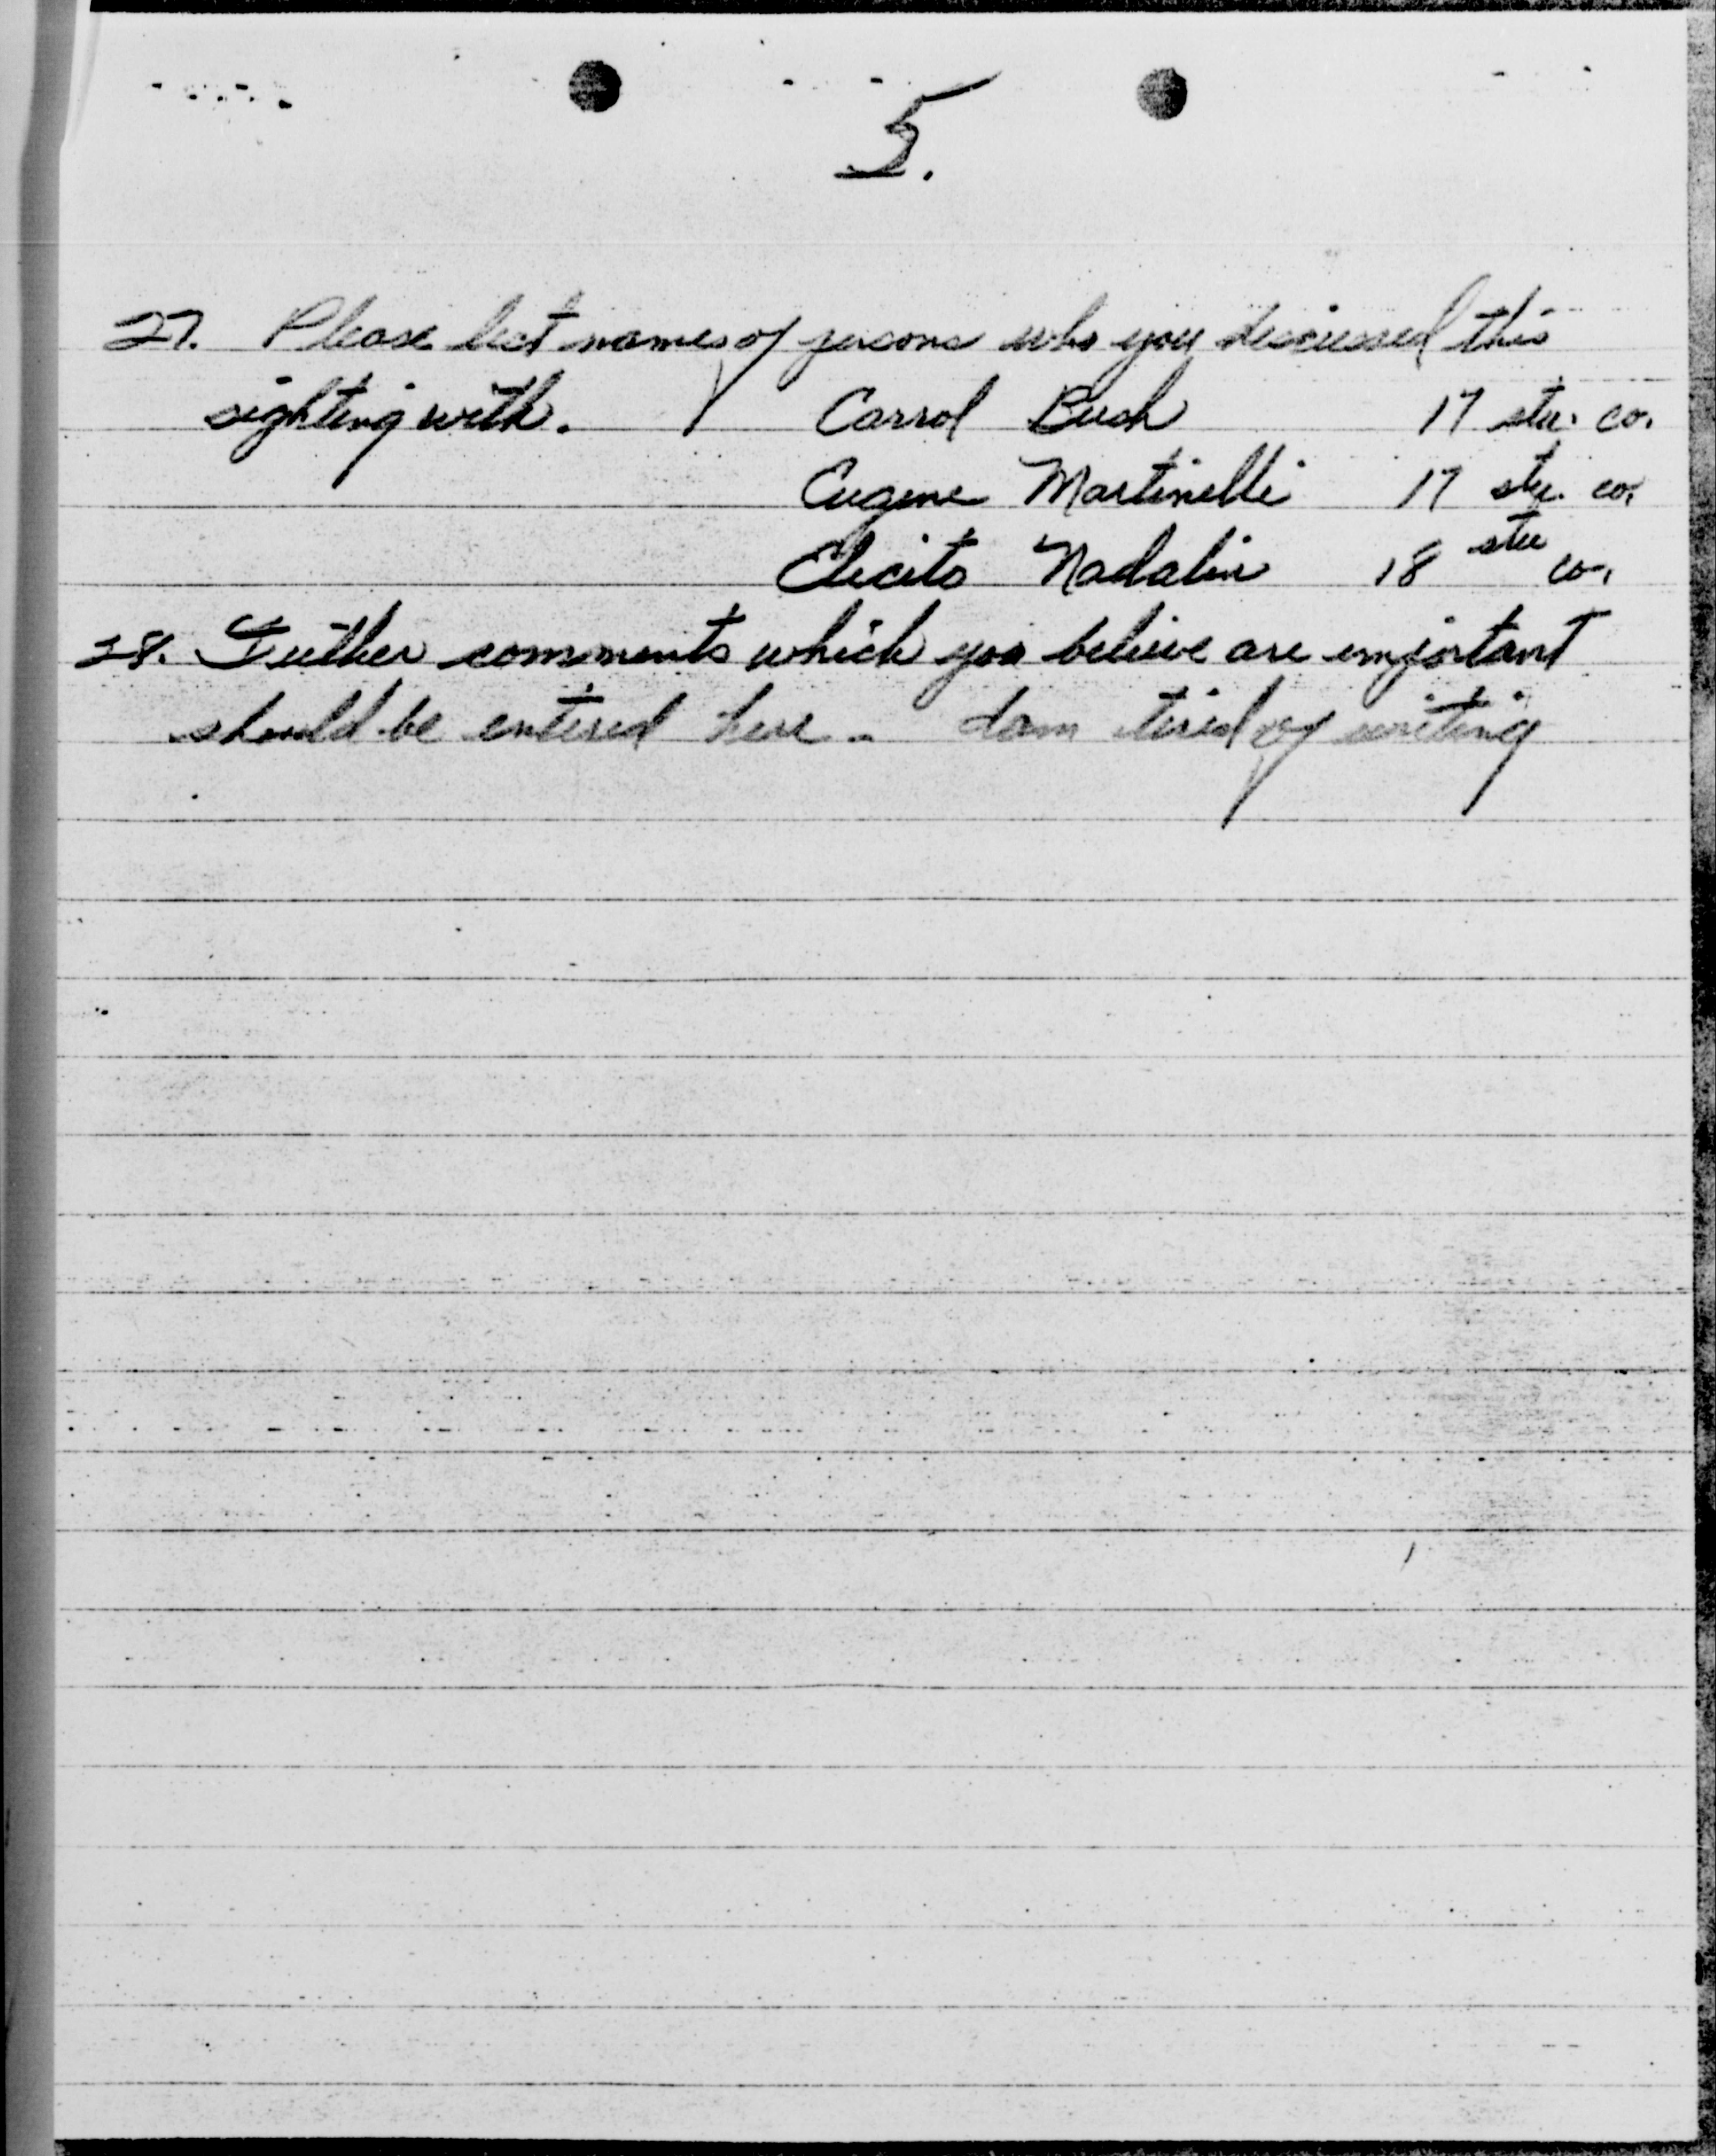 5.
27. Please list names of persons who you discussed this
sighting with. Carrol Bush 17 stu. co.
Eugene Martinelli 17 stu. co.
Elicito Nadalin 18 stu co.
28. Futher comments which you believe are important
should be entered here. dam tired of writing